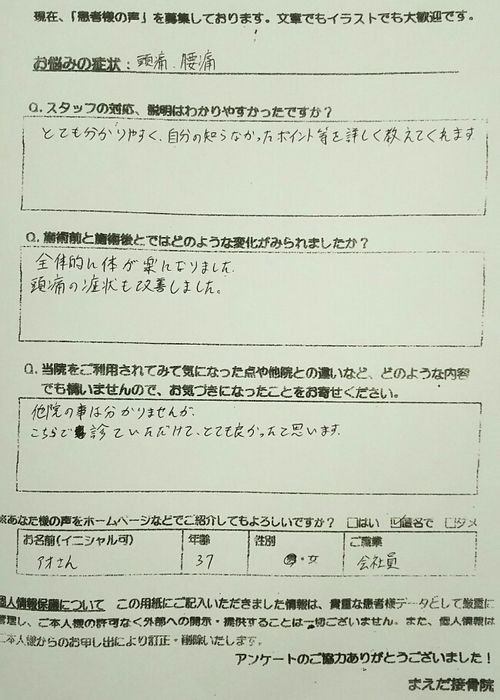 現在、「患者様の声」を募集しております。文章でもイラストでも大歓迎です。
お悩みの症状：頭痛、腰痛
Q. スタッフの対応、説明はわかりやすかったですか？
とても分かりやすく、自分の知らなかったポイント等を詳しく教えてくれます
Q. 施術前と施術後とではどのような変化がみられましたか？
全体的に体が楽になりました。
頭痛の症状も改善しました。
Q. 当院をご利用されてみて気になった点や他院との違いなど、どのような内容
でも構いませんので、お気づきになったことをお寄せください。
他院の事は分かりませんが、
こちらで診ていただけて、とても良かったと思います。
※あなた様の声をホームページなどでご紹介してもよろしいですか？ □はい ☑匿名で □ダメ
お名前(イニシャル可) 年齢 性別 ご職業
さん 37 ・女 会社員
個人情報保護について この用紙にご記入いただきました情報は、貴重な患者様データとして厳重に
管理し、ご本人様の許可なく外部への開示・提供することは一切ございません。また、個人情報は
ご本人様からのお申し出により訂正・削除いたします。
アンケートのご協力ありがとうございました！
まえだ接骨院